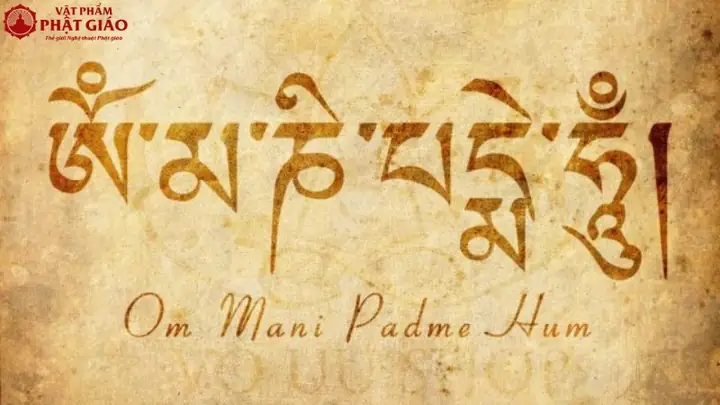 VẬT PHẨM
PHẬT GIÁO
Thế giới Nghệ thuật Phật giáo
ༀ་མ་ཎི་པདྨེ་ཧཱུྃ།
Om Mani Padme Hum